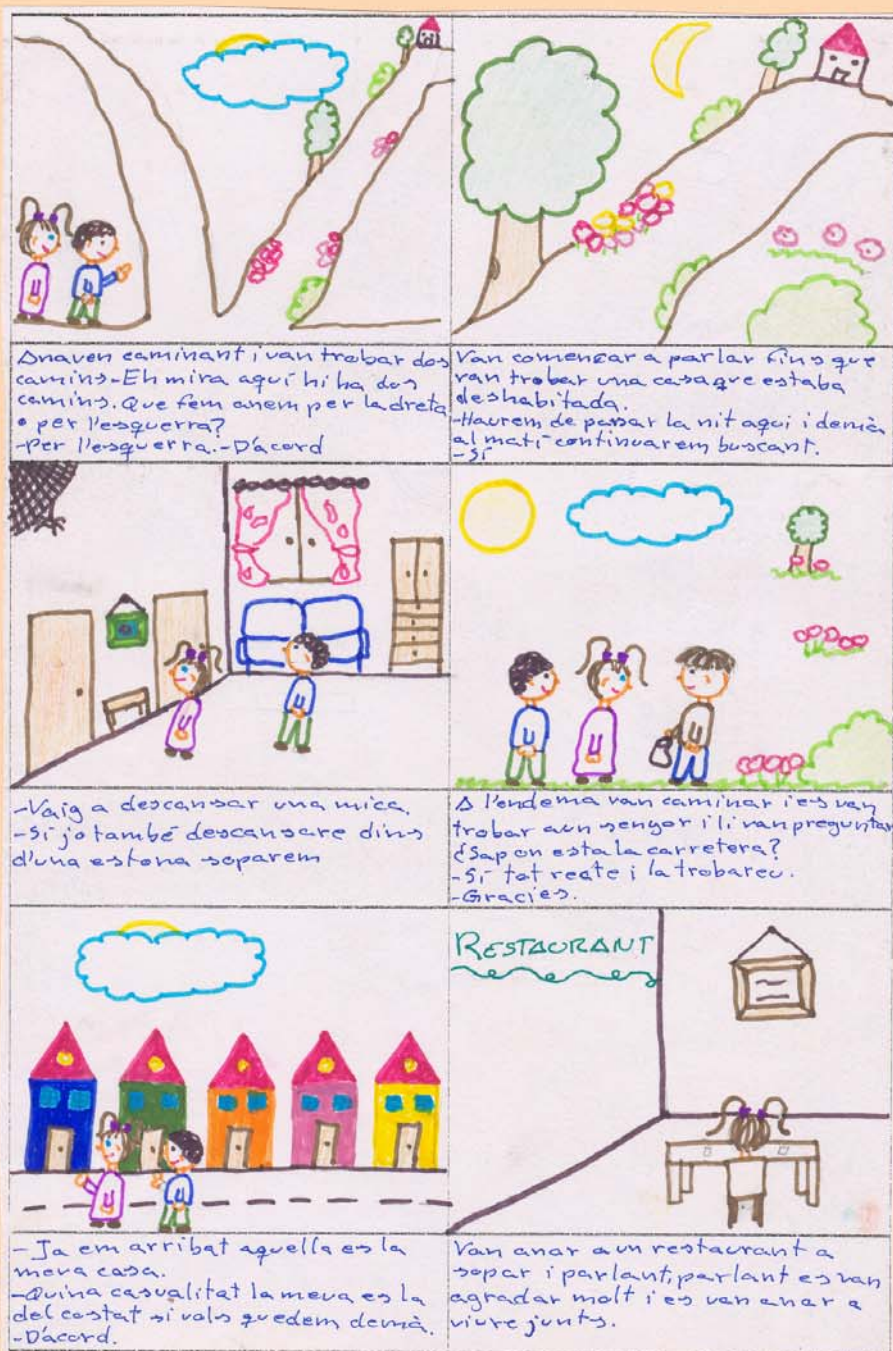 Anaven caminant i van trobar dos
camins-Eh mira aquí hi ha dos
camins. Que fem anem per la dreta
o per l'esquerra?
-Per l'esquerra.-D'acord
Van començar a parlar fins que
van trobar una casa que estaba
deshabitada.
-Haurem de passar la nit aqui i demà
al matí continuarem buscant.
-Sí
-Vaig a descansar una mica.
-Si jo també descansare dins
d'una estona soparem
A l'endema van caminar i es van
trobar a un senyor i li van preguntar
¿Sap on esta la carretera?
-Sí tot recte i la trobareu.
-Gracies.
RESTAURANT
-Ja em arribat aquella es la
meva casa.
-Quina casualitat la meva es la
del costat si vols quedem demà.
-D'acord.
Van anar a un restaurant a
sopar i parlant, parlant es van
agradar molt i es van anar a
viure junts.